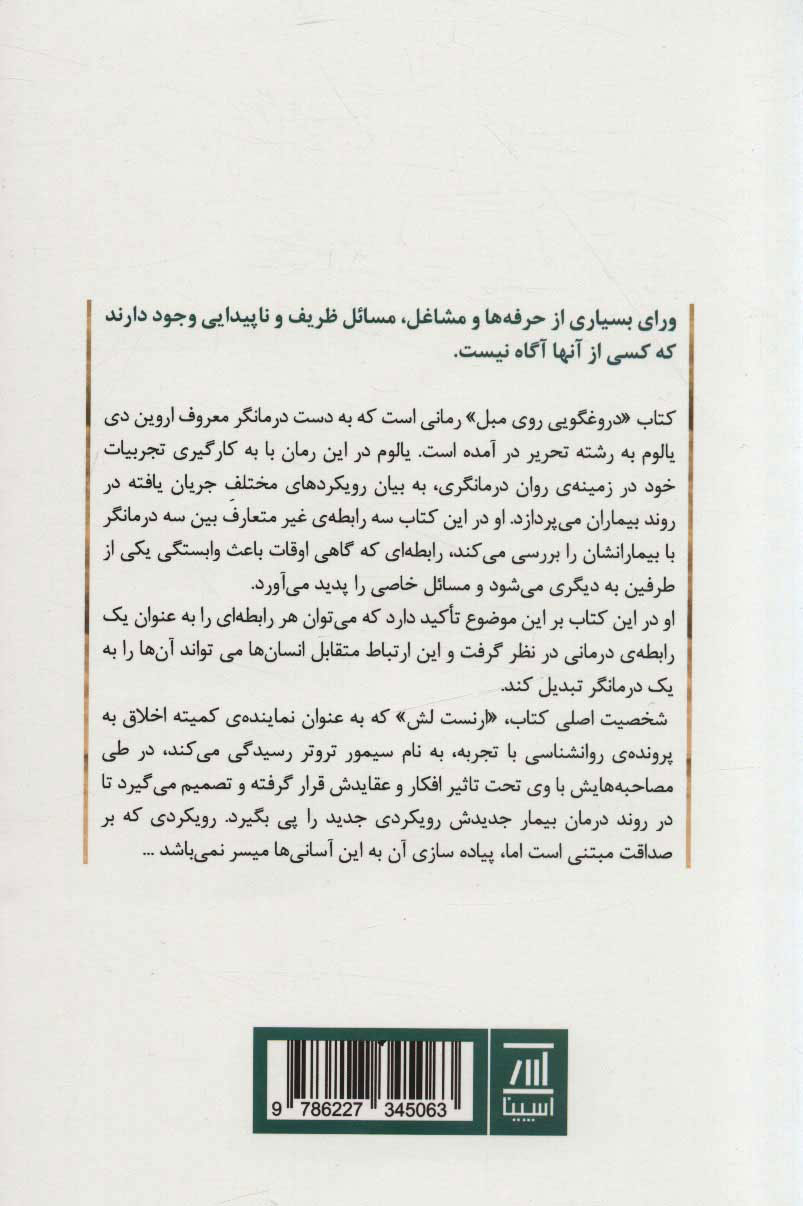 ورای بسیاری از حرفه‌ها و مشاغل، مسائل ظریف و ناپیدایی وجود دارند
که کسی از آنها آگاه نیست.
کتاب «دروغگویی روی مبل» رمانی است که به دست درمانگر معروف اروین دی
یالوم به رشته تحریر در آمده است. یالوم در این رمان با به کارگیری تجربیات
خود در زمینه‌ی روان درمانگری، به بیان رویکردهای مختلف جریان یافته در
روند بیماران می‌پردازد. او در این کتاب سه رابطه‌ی غیر متعارف بین سه درمانگر
با بیمارانشان را بررسی می‌کند، رابطه‌ای که گاهی اوقات باعث وابستگی یکی از
طرفین به دیگری می‌شود و مسائل خاصی را پدید می‌آورد.
او در این کتاب بر این موضوع تأکید دارد که می‌توان هر رابطه‌ای را به عنوان یک
رابطه‌ی درمانی در نظر گرفت و این ارتباط متقابل انسان‌ها می تواند آن‌ها را به
یک درمانگر تبدیل کند.
شخصیت اصلی کتاب، «ارنست لش» که به عنوان نماینده‌ی کمیته اخلاق به
پرونده‌ی روانشناسی با تجربه، به نام سیمور تروتر رسیدگی می‌کند، در طی
مصاحبه‌هایش با وی تحت تاثیر افکار و عقایدش قرار گرفته و تصمیم می‌گیرد تا
در روند درمان بیمار جدیدش رویکردی جدید را پی بگیرد. رویکردی که بر
صداقت مبتنی است اما، پیاده سازی آن به این آسانی‌ها میسر نمی‌باشد ...
9 786227 345063
آسپینا